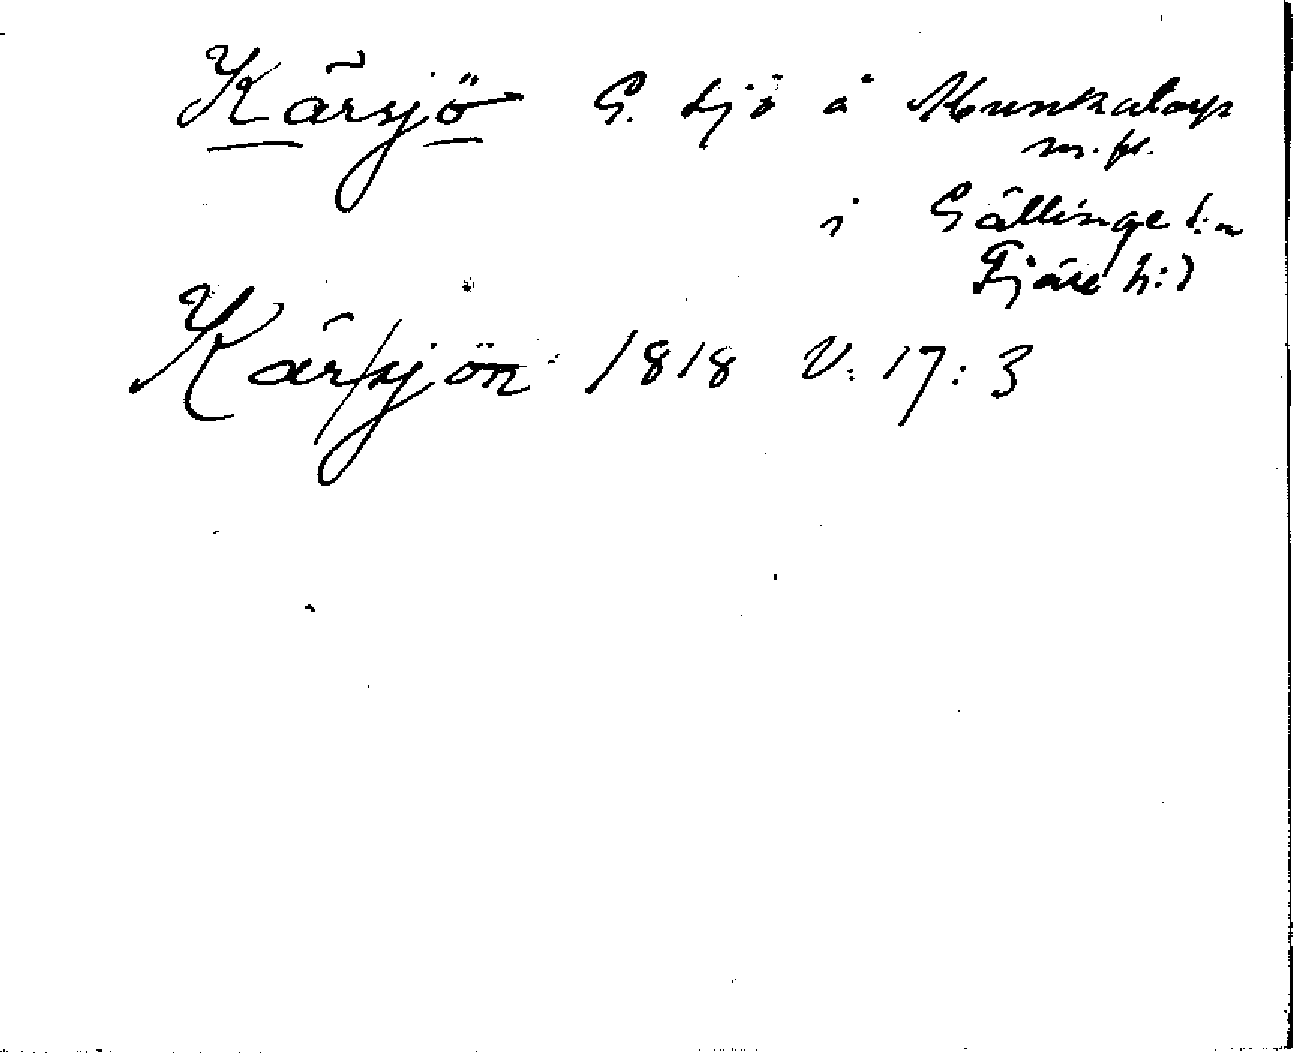 Kärsjö G. sjö å Munkatorp
m. fl.
i Gällinge s:n
Fjäre h:d
Kärsjön 1818 V. 17:3